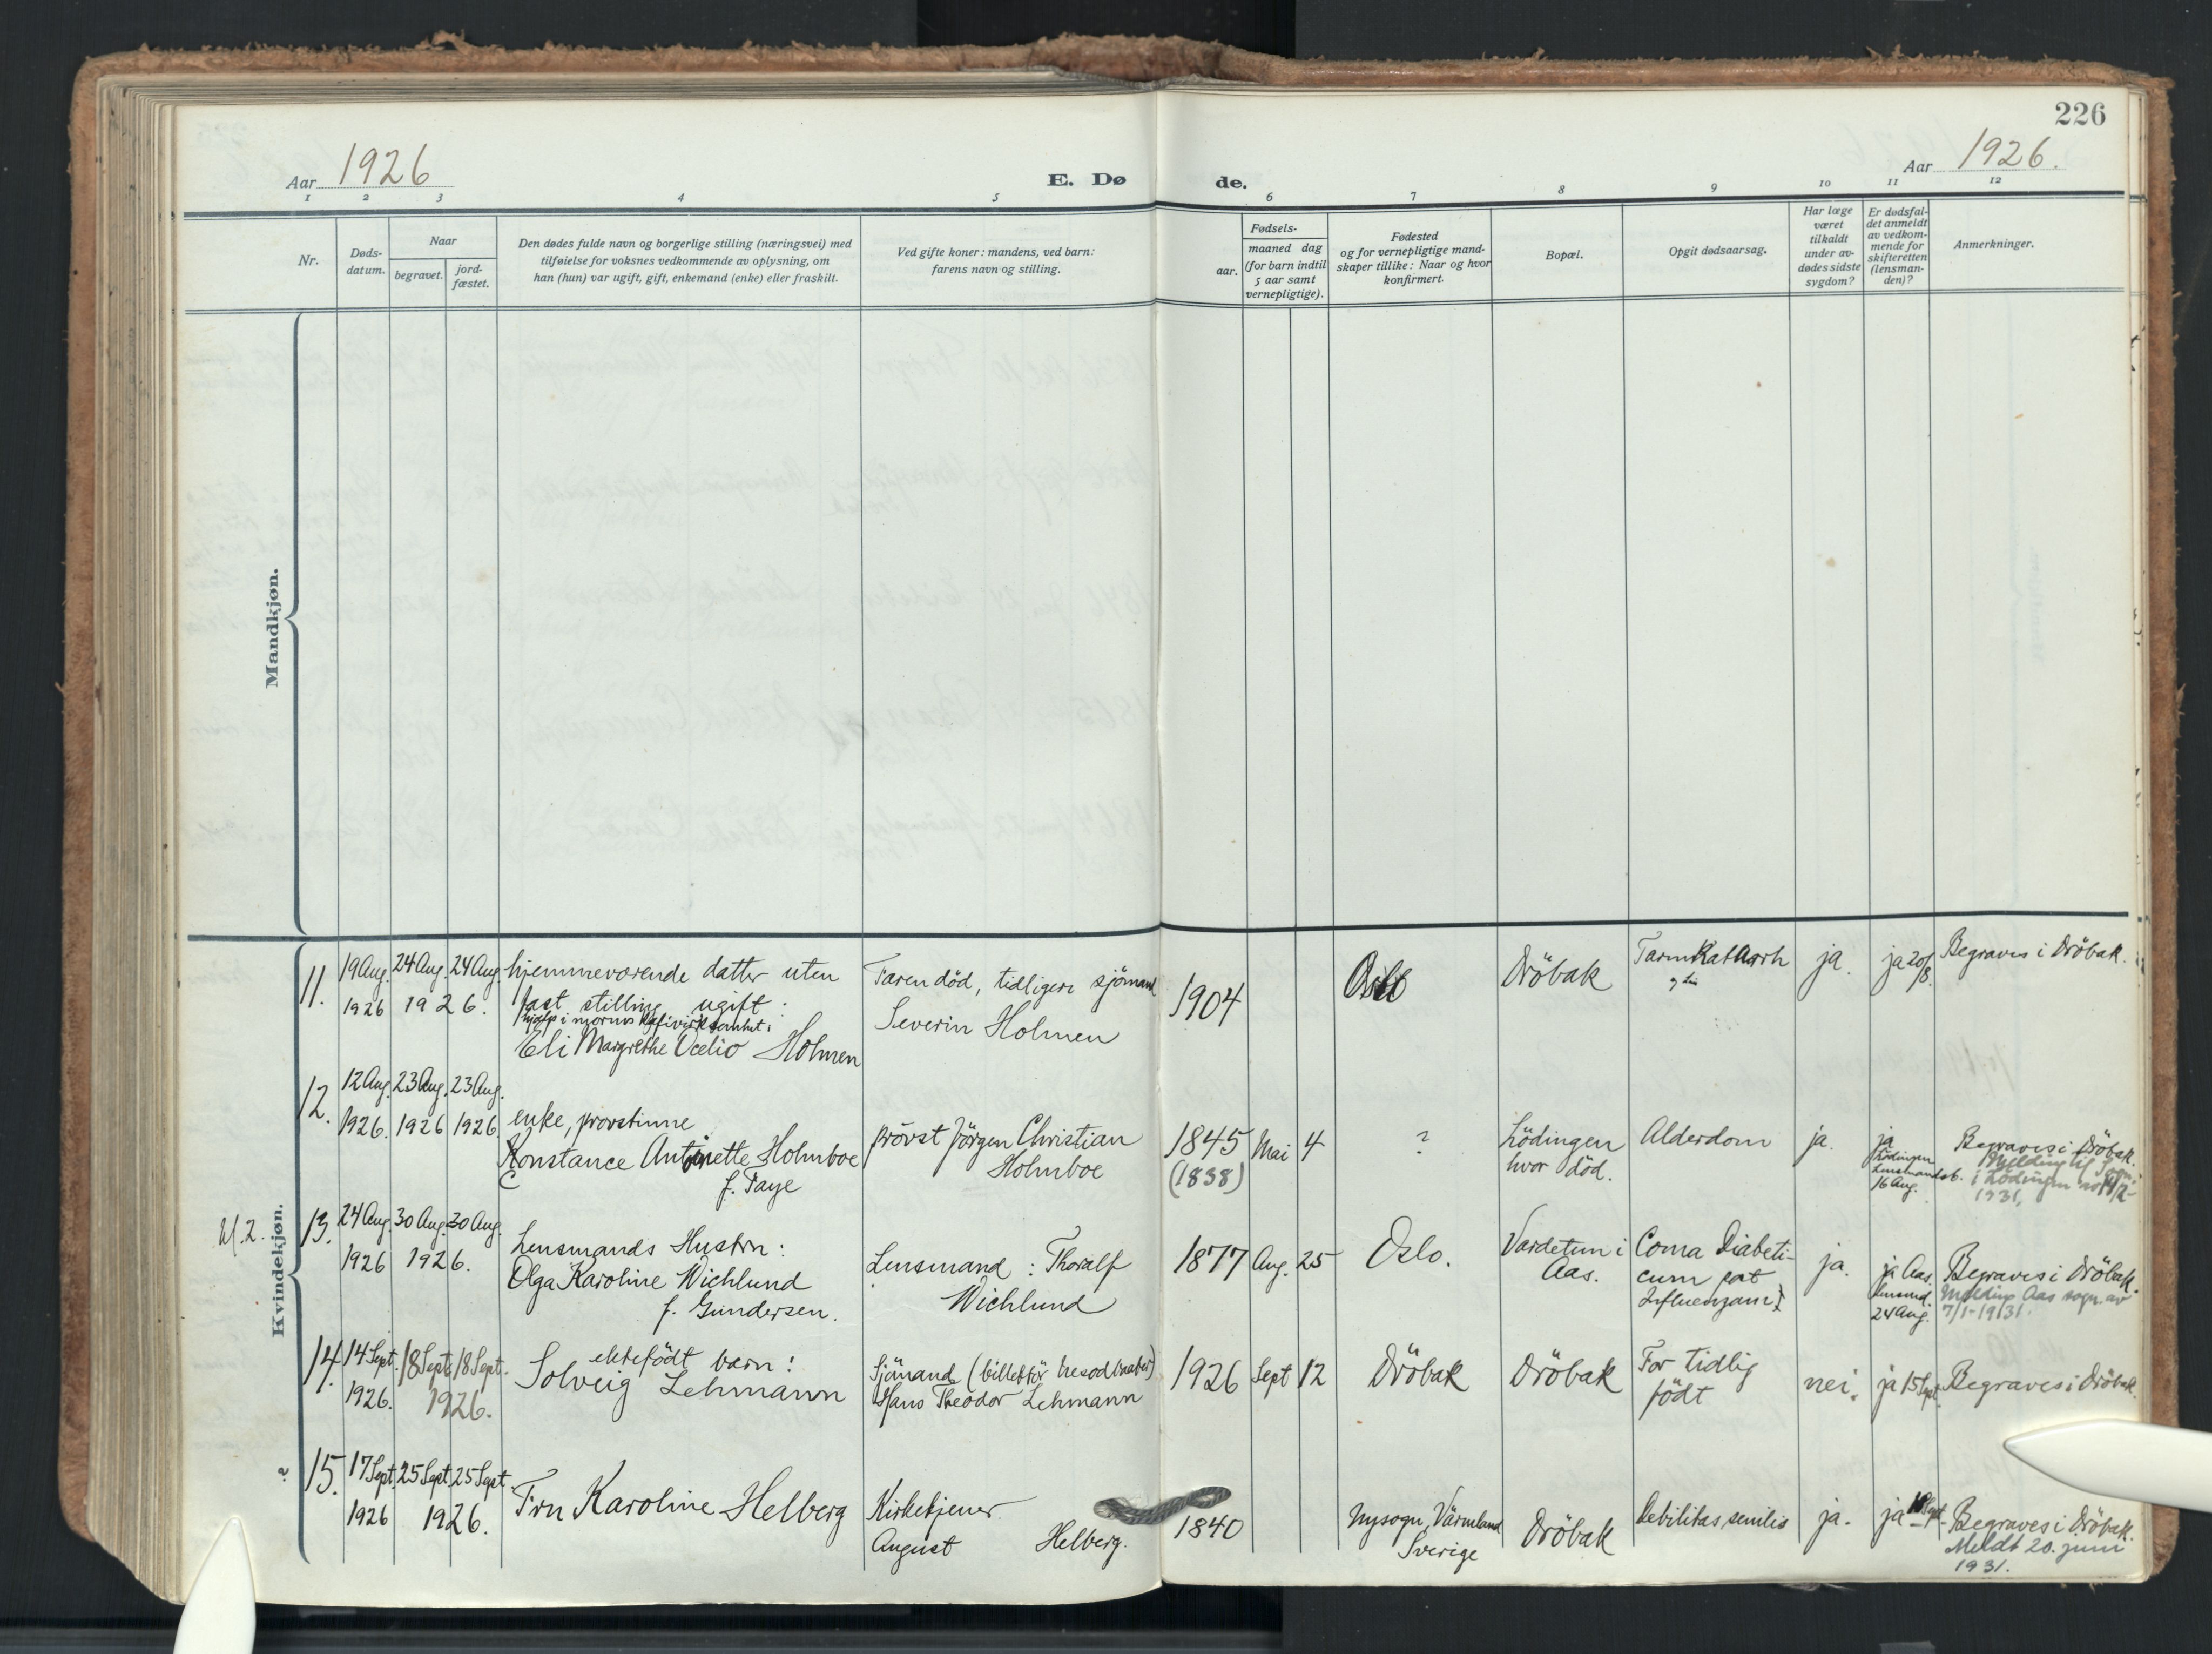 226
Aar 1926
E. Dø
de.
Aar 1926.
1 2 3 4 5 6 7 8 9 10 11 12
Nr.
Døds-
datum.
Naar
begravet.
jord-
fæstet.
Den dødes fulde navn og borgerlige stilling (næringsvei) med
tilføielse for voksnes vedkommende av oplysning, om
han (hun) var ugift, gift, enkemand (enke) eller fraskilt.
Ved gifte koner: mandens, ved barn:
farens navn og stilling.
Fødsels-
aar.
maaned dag
(for barn indtil
5 aar samt
vernepligtige).
Fødested
og for vernepligtige mand-
skaper tillike: Naar og hvor
konfirmert.
Bopæl.
Opgit dødsaarsag.
Har læge
været
tilkaldt
under av-
dødes sidste
sygdom?
Er dødsfal-
det anmeldt
av vedkom-
mende for
skifteretten
(lensman-
den)?
Anmerkninger.
Mandkjøn.
Kvindekjøn.
11.
19 Aug.
1926
24 Aug. 24 Aug.
1926.
hjemmeværende datter uten
fast stilling ugift.
Eli Margrethe Holmen
Faren död, tidligere sjömand
Severin Holmen
1904
Oslo
Dröbak
Tarmkatarrh
ja.
ja 20/8.
Begraves i Dröbak.
12.
12 Aug.
1926.
23 Aug.
1926
23 Aug.
1926
enke, provstinne
Konstance Antoinette Holmboe
f. Faye
prövst Jörgen Christian
Holmboe
1845
(1838)
Mai
4
?
Lödingen
hvor död.
Alderdom
ja.
ja
Lödingen
Lensmandsb.
16 Aug.
Begraves i Dröbak.
Melding til Sogn.
i Lödingen av 14/2-
1931.
13.
24 Aug.
1926
30 Aug. 30 Aug.
1926.
Lensmands Hustru:
Olga Karoline Wichlund
f. Gundersen.
Lensmand: Thoralf
Wichlund
1877
Aug.
25
Oslo.
Vardetun i
Aas.
Coma Diabeti-
cum pst
Influenzam
ja.
ja Aas.
lensmd.
24 Aug.
Begraves i Dröbak.
Melding Aas sogn. av
7/1-1931.
14.
14 Sept.
1926.
18 Sept. 18 Sept.
1926.
ektefödt barn:
Solveig Lehmann
Sjömand (billettör
Hans Theodor Lehmann
1926
Sept
12
Dröbak
Dröbak
For tidlig
födt
nei.
ja 15 Sept.
Begraves i Dröbak.
15.
17 Sept.
1926
25 Sept. 25 Sept.
1926.
Fru Karoline Helberg
Kirketjener
August Helberg.
1840
Nysogn, Värmland
Sverige
Dröbak
Debilitas senilis
ja.
ja 18 Sept.
Begraves i Dröbak.
Meldt 20. juni
1931.